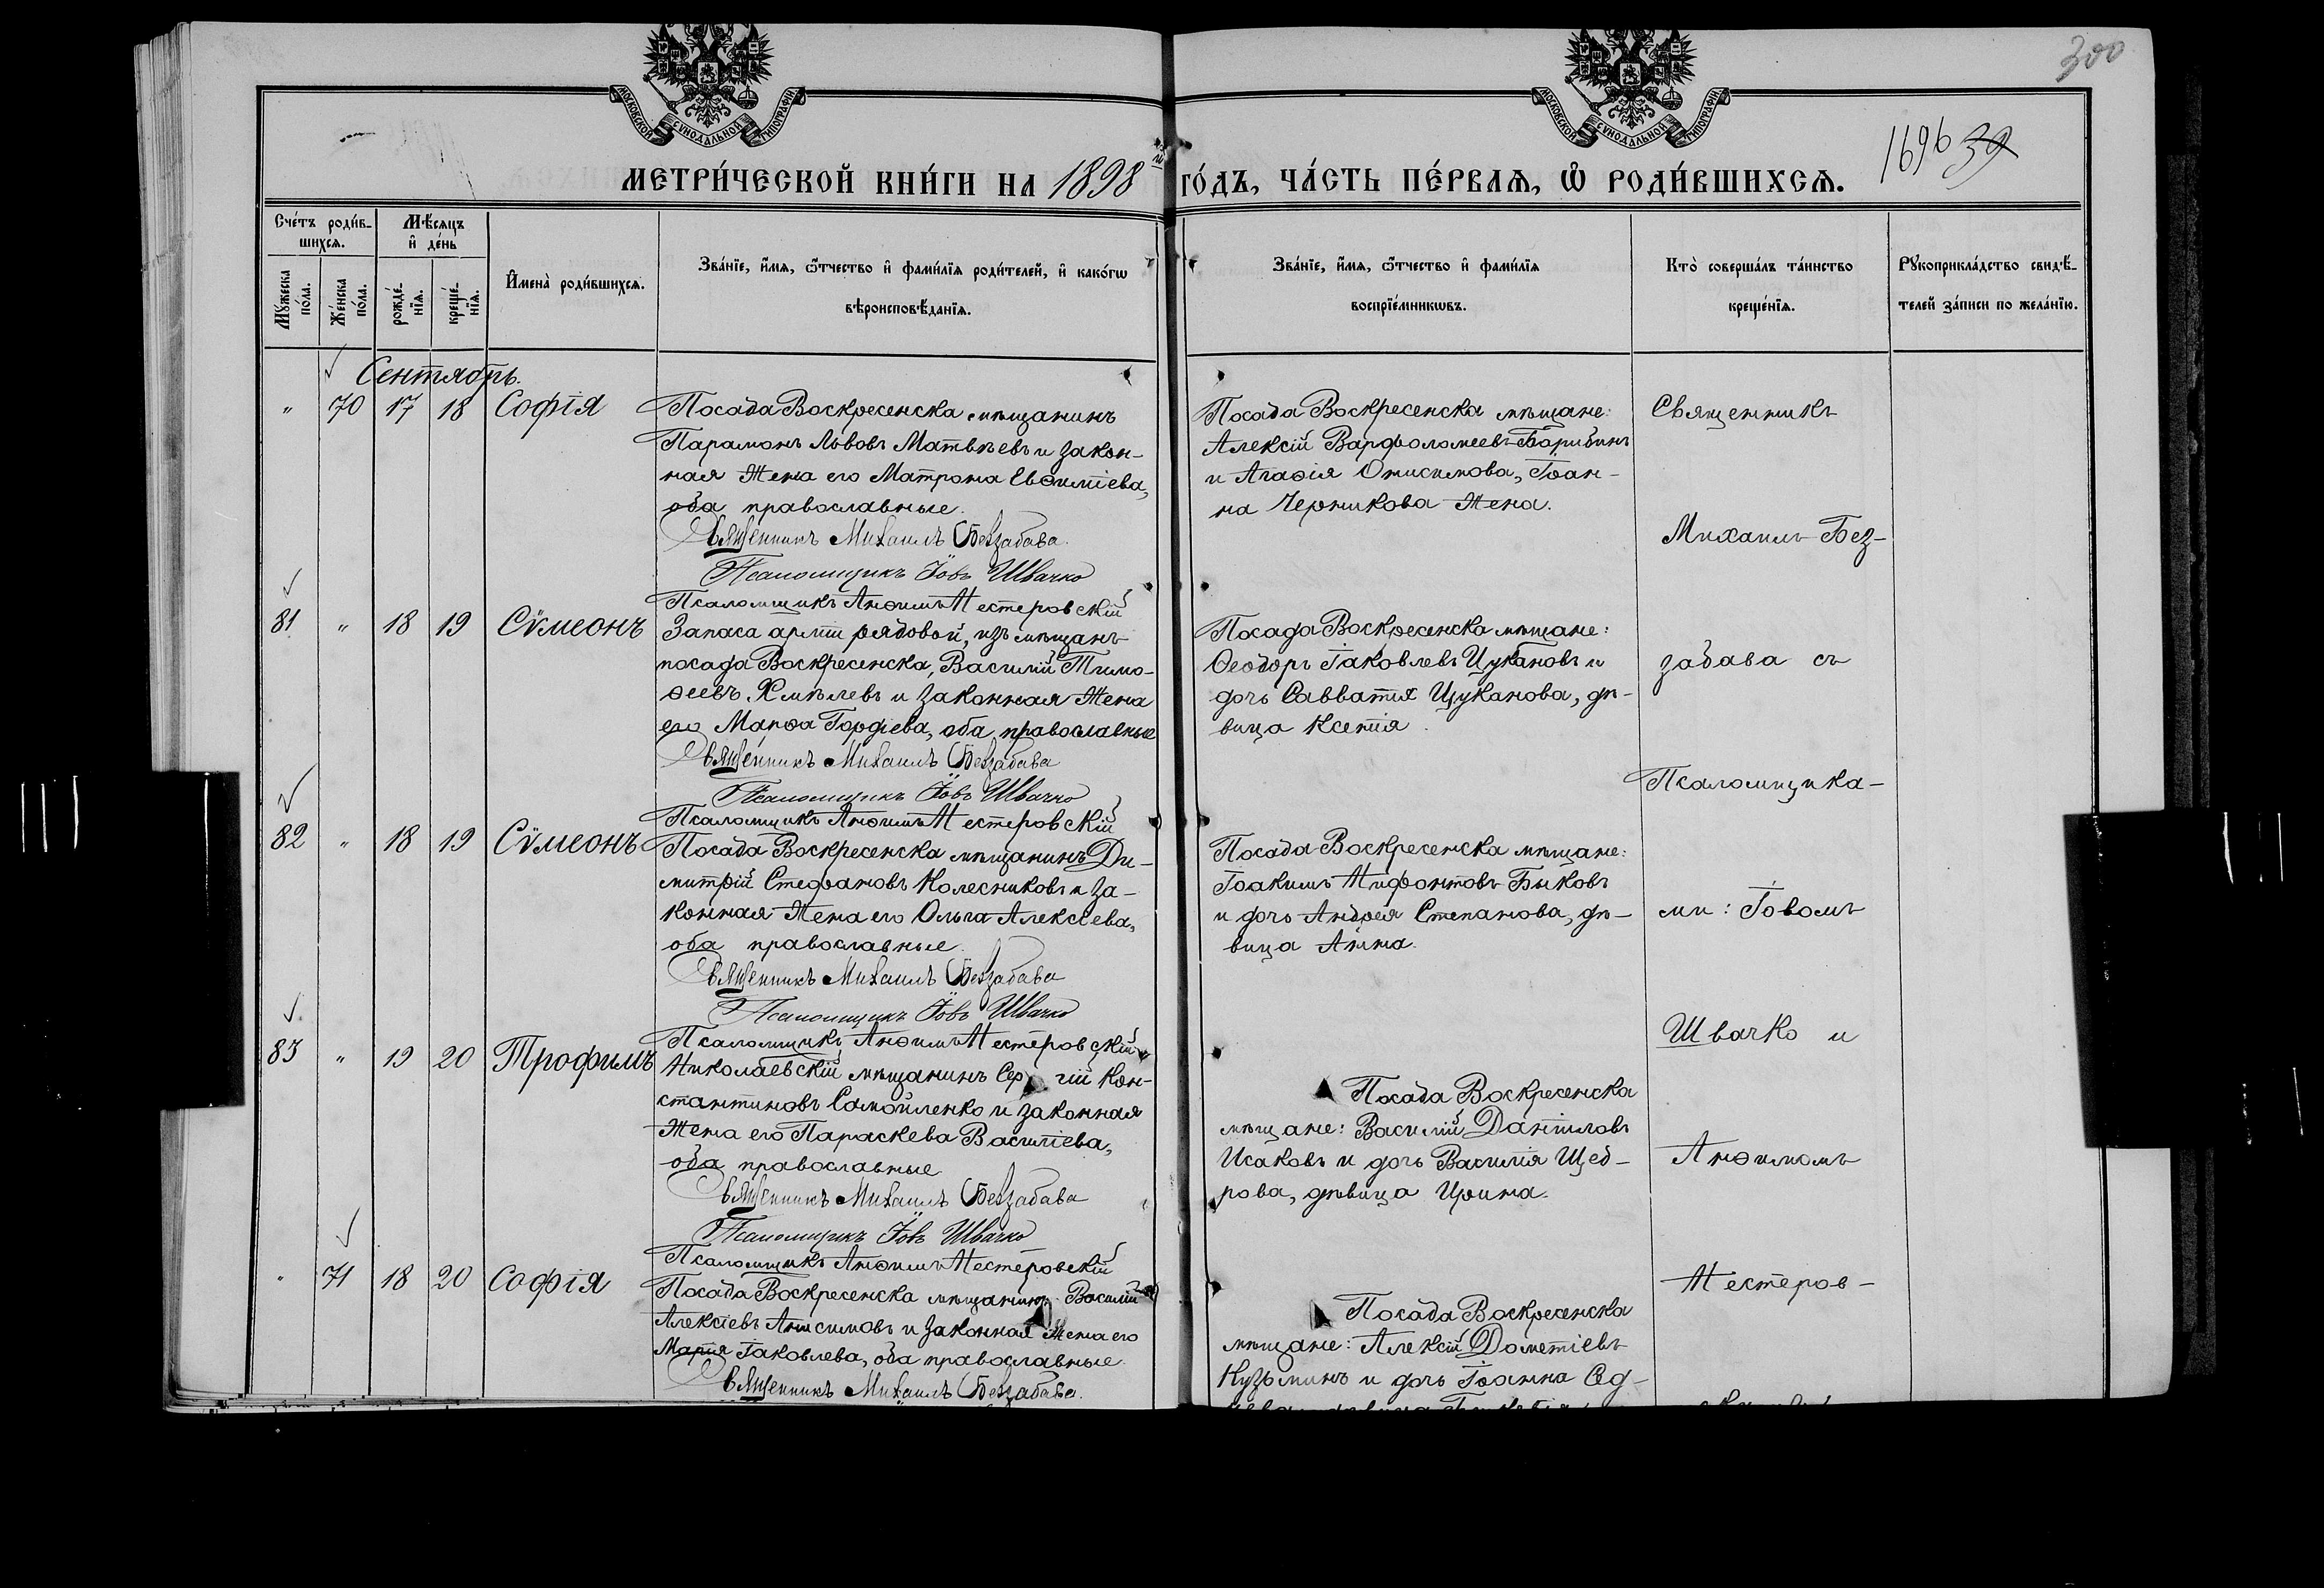 300
МОСКОВСКОЙ СѴНОДАЛЬНОЙ ТИПОГРАФИИ
МОСКОВСКОЙ СѴНОДАЛЬНОЙ ТИПОГРАФИИ
1696 39
МЕТРИ́ЧЕСКОЙ КНИ́ГИ НА 1898 й ГО́ДЪ, ЧА́СТЬ ПЕ́РВАЯ, Ѡ РОДИ́ВШИХСЯ.
Сче́тъ роди́в-
шихся.
Мѣ́сяцъ
и де́нь
Му́жеска
по́ла.
Же́нска
по́ла.
рожде́-
нїя.
креще́-
нїя.
Имена̀ роди́вшихся.
Зва́нїе, и́мя, ѻ́тчество и фами́лїя роди́телей, и како́гѡ
вѣроисповѣ́данїя.
Зва́нїе, и́мя, ѻ́тчество и фами́лїя
воспрїе́мникѡвъ.
Кто̀ соверша́лъ та́инство
креще́нїя.
Рꙋкоприкла́дство свидѣ́-
телей за́писи по жела́нїю.
Сентябрь.
" 70 17 18 Софія
Посада Воскресенска мѣщанинъ
Парамонъ Львовъ Матвѣевъ и закон-
ная жена его Матрона Евѳиміева,
оба православные.
Священникъ Михаилъ Беззабава.
Псаломщикъ Іовъ Швачко
Псаломщикъ Анѳимъ Нестеровскій
Посада Воскресенска мѣщане:
Алексій Варфоломеевъ Барибинъ
и Агаѳія Онисимова, Іоан-
на Черникова жена.
81 " 18 19 Сѵмеонъ
Запаса арміи рядовой, изъ мѣщанъ
посада Воскресенска, Василій Тимо-
ѳеевъ Хмѣлевъ и законная жена
его Марѳа Гордіева, оба православные
Священникъ Михаилъ Беззабава
Псаломщикъ Іовъ Швачко
Псаломщикъ Анѳимъ Нестеровскій
Посада Воскресенска мѣщане:
Ѳеодоръ Іаковлевъ Цукановъ и
дочь Савватія Цуканова, дѣ-
вица Ксенія.
82 " 18 19 Сѵмеонъ
Посада Воскресенска мѣщанинъ Ди-
митрій Стефановъ Колесниковъ и за-
конная жена его Ольга Алексіева,
оба православные.
Священникъ Михаилъ Беззабава
Псаломщикъ Іовъ Швачко
Псаломщикъ Анѳимъ Нестеровскій
Посада Воскресенска мѣщане:
Іоакимъ Нифонтовъ Быковъ
и дочь Андрея Степанова, дѣ-
вица Анна.
83 " 19 20 Трофимъ
Николаевскій мѣщанинъ Сергій Кон-
стантиновъ Самойленко и законная
жена его Параскева Василіева,
оба православные
Священникъ Михаилъ Беззабава
Псаломщикъ Іовъ Швачко
Псаломщикъ Анѳимъ Нестеровскій
Посада Воскресенска
мѣщане: Василій Даніиловъ
Исаковъ и дочь Василія Щед-
рова, дѣвица Ирина.
" 71 18 20 Софія
Посада Воскресенска мѣщанинъ Василій
Алексіевъ Анисимовъ и законная жена его
Марія Іаковлева, оба православные.
Священникъ Михаилъ Беззабава.
Посада Воскресенска
мѣщане: Алексій Дометіевъ
Кузьминъ и дочь Іоанна Сед-
Священникъ
Михаилъ Без-
забава съ
Псаломщика-
ми: Іовомъ
Швачко и
Анѳимомъ
Нестеров-